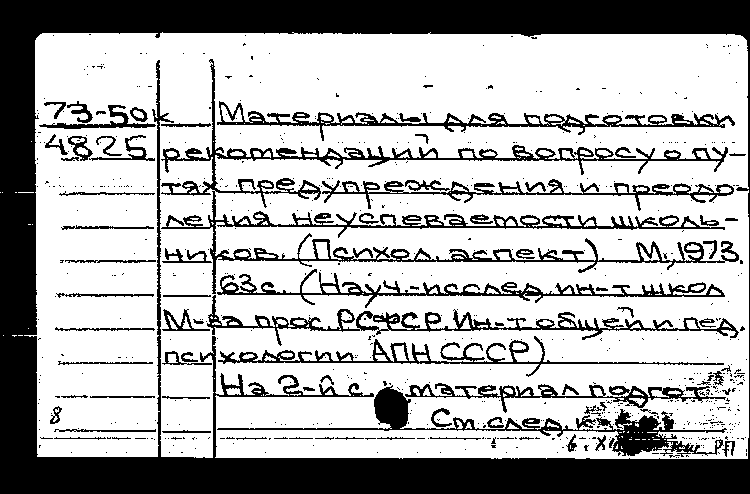 73-50к Материалы для подготовки
4825 рекомендаций по вопросу о пу-
тях предупреждения и преодо-
ления неуспеваемости школь-
ников. (Психол. аспект). М., 1973.
63с. (Науч.-исслед. ин-т школ
М-ва прос. РСФСР. Ин-т общей и пед.
психологии АПН СССР).
На 2-й с. материал подгот.
8 См. след. к